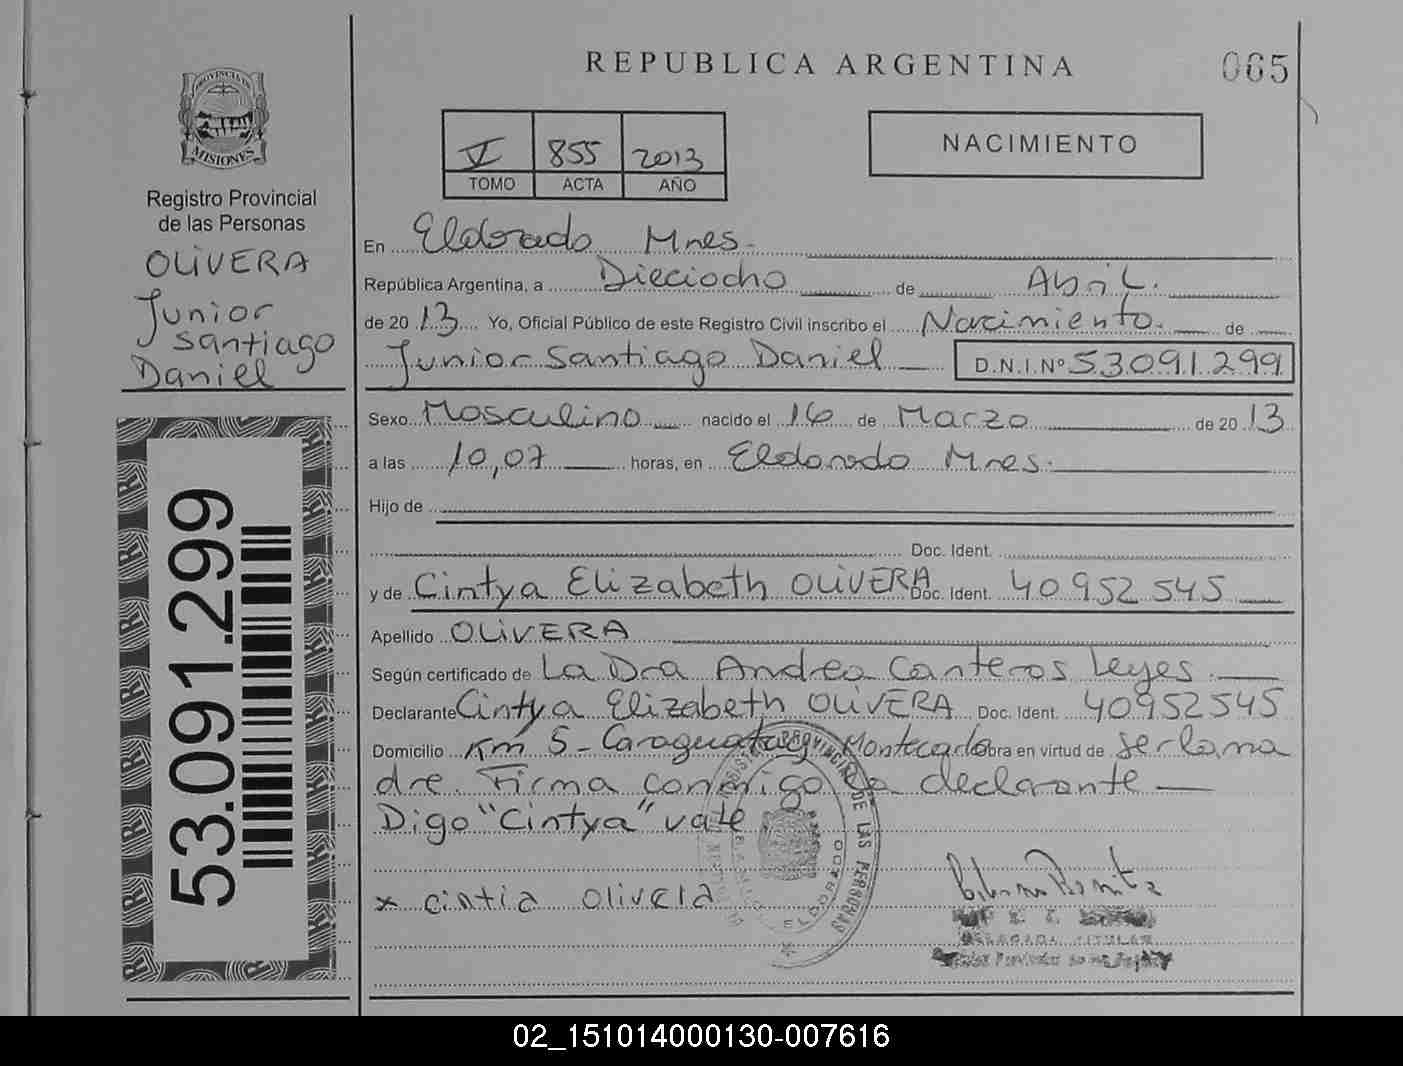 REPUBLICA ARGENTINA
065
PROVINCIA DE
MISIONES
Registro Provincial
de las Personas
OLIVERA
Junior
Santiago
Daniel
53.091.299
V 855 2013
TOMO ACTA AÑO
NACIMIENTO
En Eldorado Mnes.
República Argentina, a Dieciocho de Abril.
de 20 13 Yo, Oficial Público de este Registro Civil inscribo el Nacimiento. de
Junior Santiago Daniel D.N.I.Nº 53.091.299
Sexo Masculino nacido el 16 de Marzo de 20 13
a las 10,07 horas, en Eldorado Mnes.
Hijo de
Doc. Ident.
y de Cintya Elizabeth OLIVERA Doc. Ident. 40952545
Apellido OLIVERA
Según certificado de La Dra Andrea Canteros Leyes.
Declarante Cintya Elizabeth OLIVERA Doc. Ident. 40952545
Domicilio Km 5 - Caraguatay, Montecarlo obra en virtud de ser la ma
dre. Firma conmigo la declarante
Digo "Cintya" vale
x cintia olivera
REGISTRO PROVINCIAL DE LAS PERSONAS
ELDORADO
DELEGADA TITULAR
02_151014000130-007616